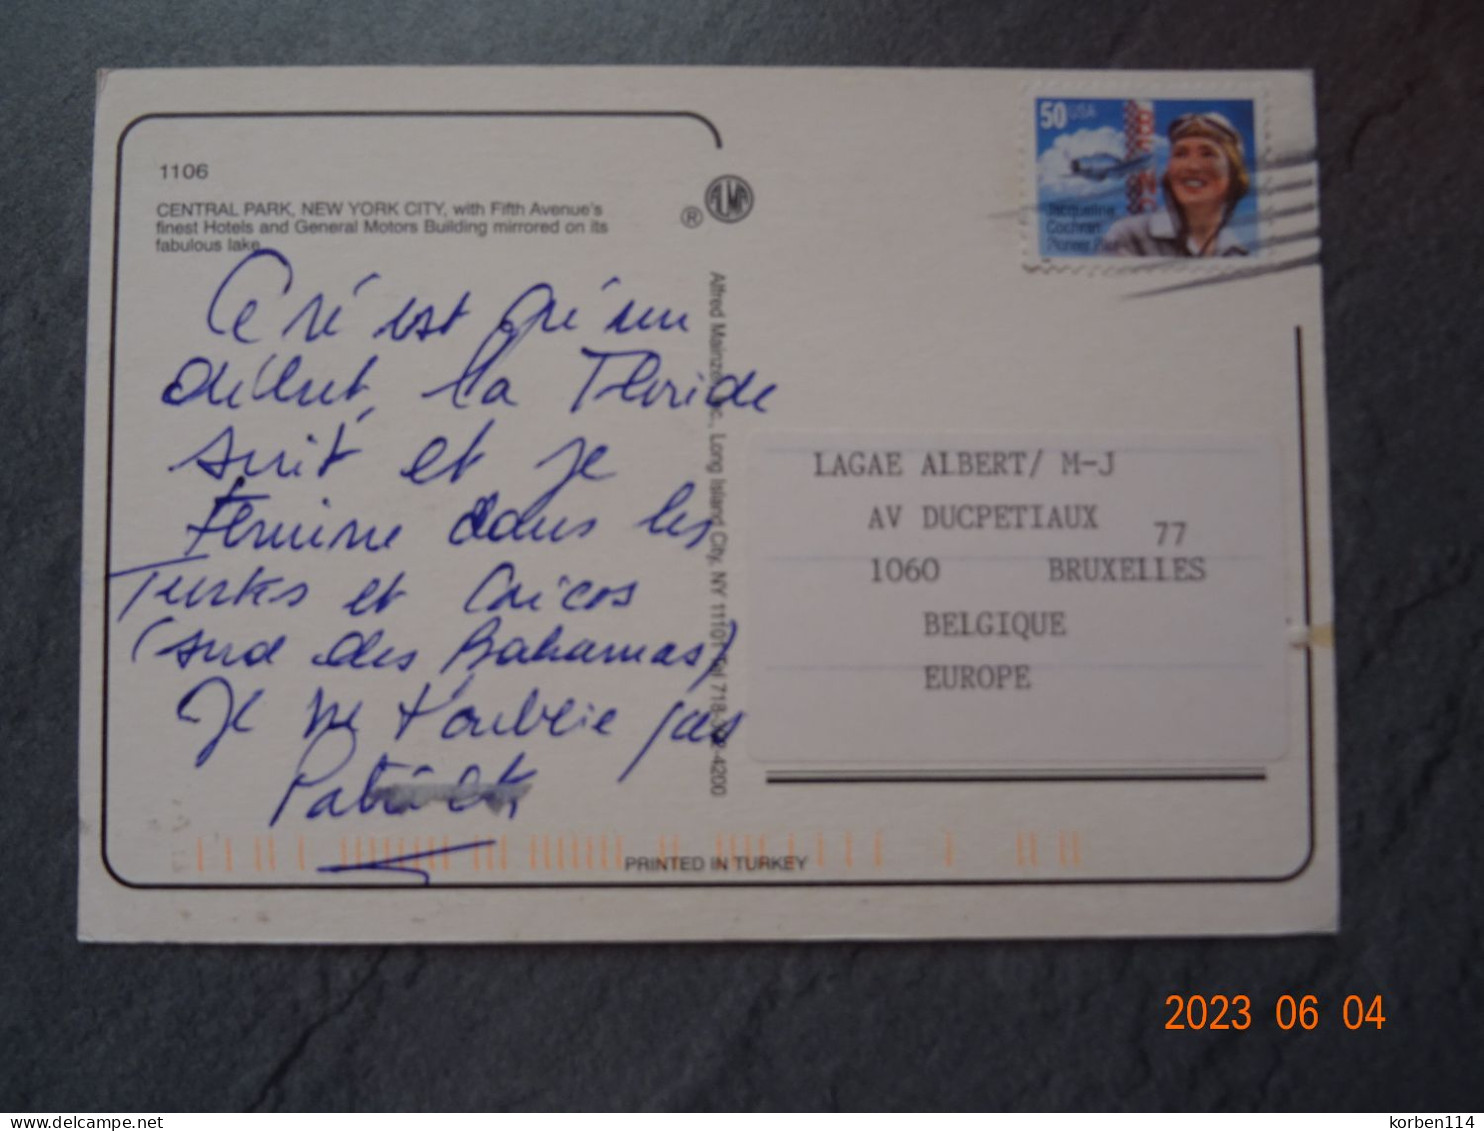 1106
CENTRAL PARK, NEW YORK CITY, with Fifth Avenue's
finest Hotels and General Motors Building mirrored on its
fabulous lake.
Ce n'est qu'un
début, la Floride
suit et je
termine dans les
Turks et Caicos
(sud des Bahamas)
Je ne t'oublie pas
Patrick
®
ALMA
Alfred Mainzer, Inc., Long Island City, NY 11101 Tel 718-392-4200
50 USA
Jacqueline
Cochran
Pioneer Pilot
LAGAE ALBERT/ M-J
AV DUCPETIAUX 77
1060 BRUXELLES
BELGIQUE
EUROPE
PRINTED IN TURKEY
2023 06 04
delcampe.net
korben114